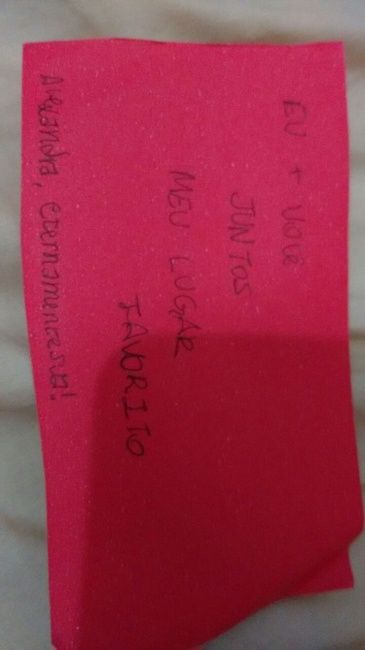 EU + Você
JUNTOS
MEU LUGAR
FAVORITO
eternamente sua!